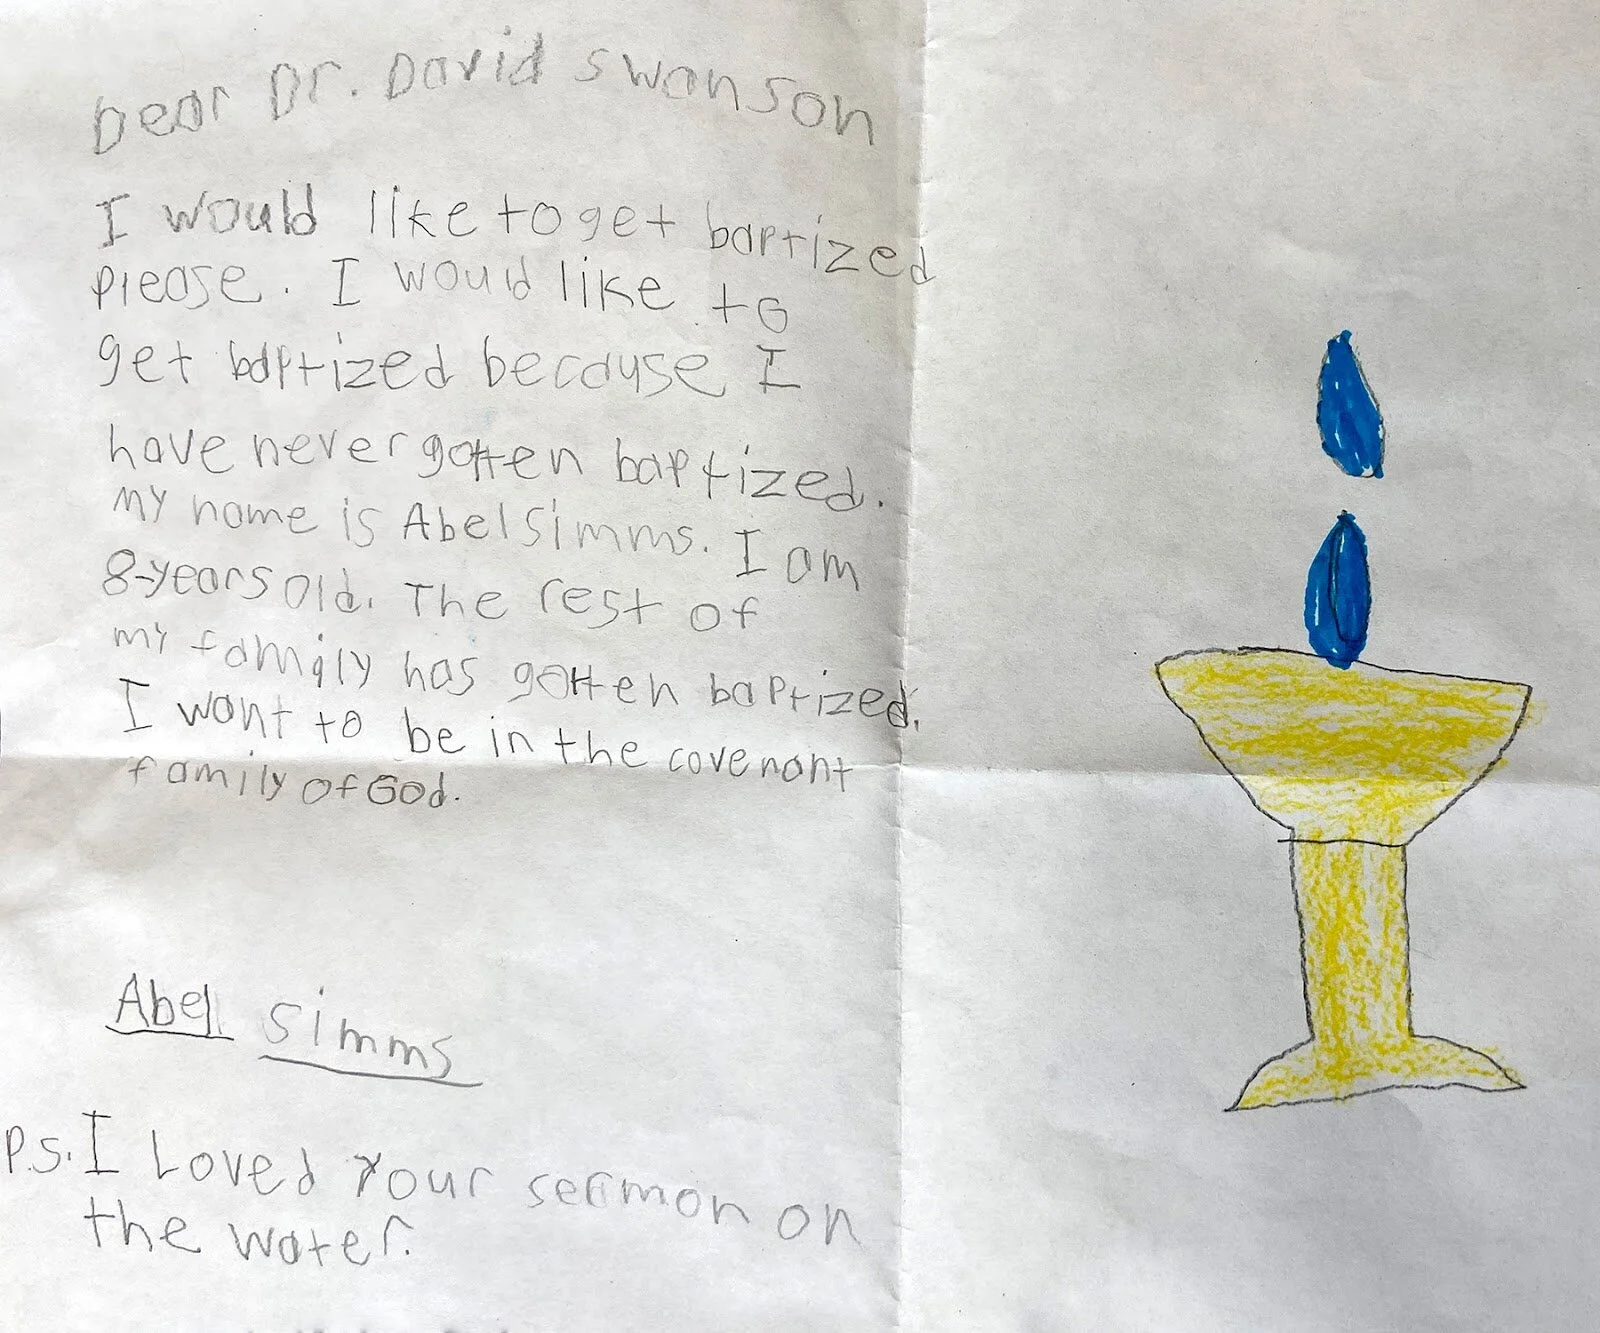 Dear Dr. David Swanson
I would like to get baptized
please. I would like to
get baptized because I
have never gotten baptized.
my name is Abel simms. I am
8-years old. The rest of
my family has gotten baptized.
I want to be in the covenant
family of God.
Abel simms
P.S. I Loved your sermon on
the water.